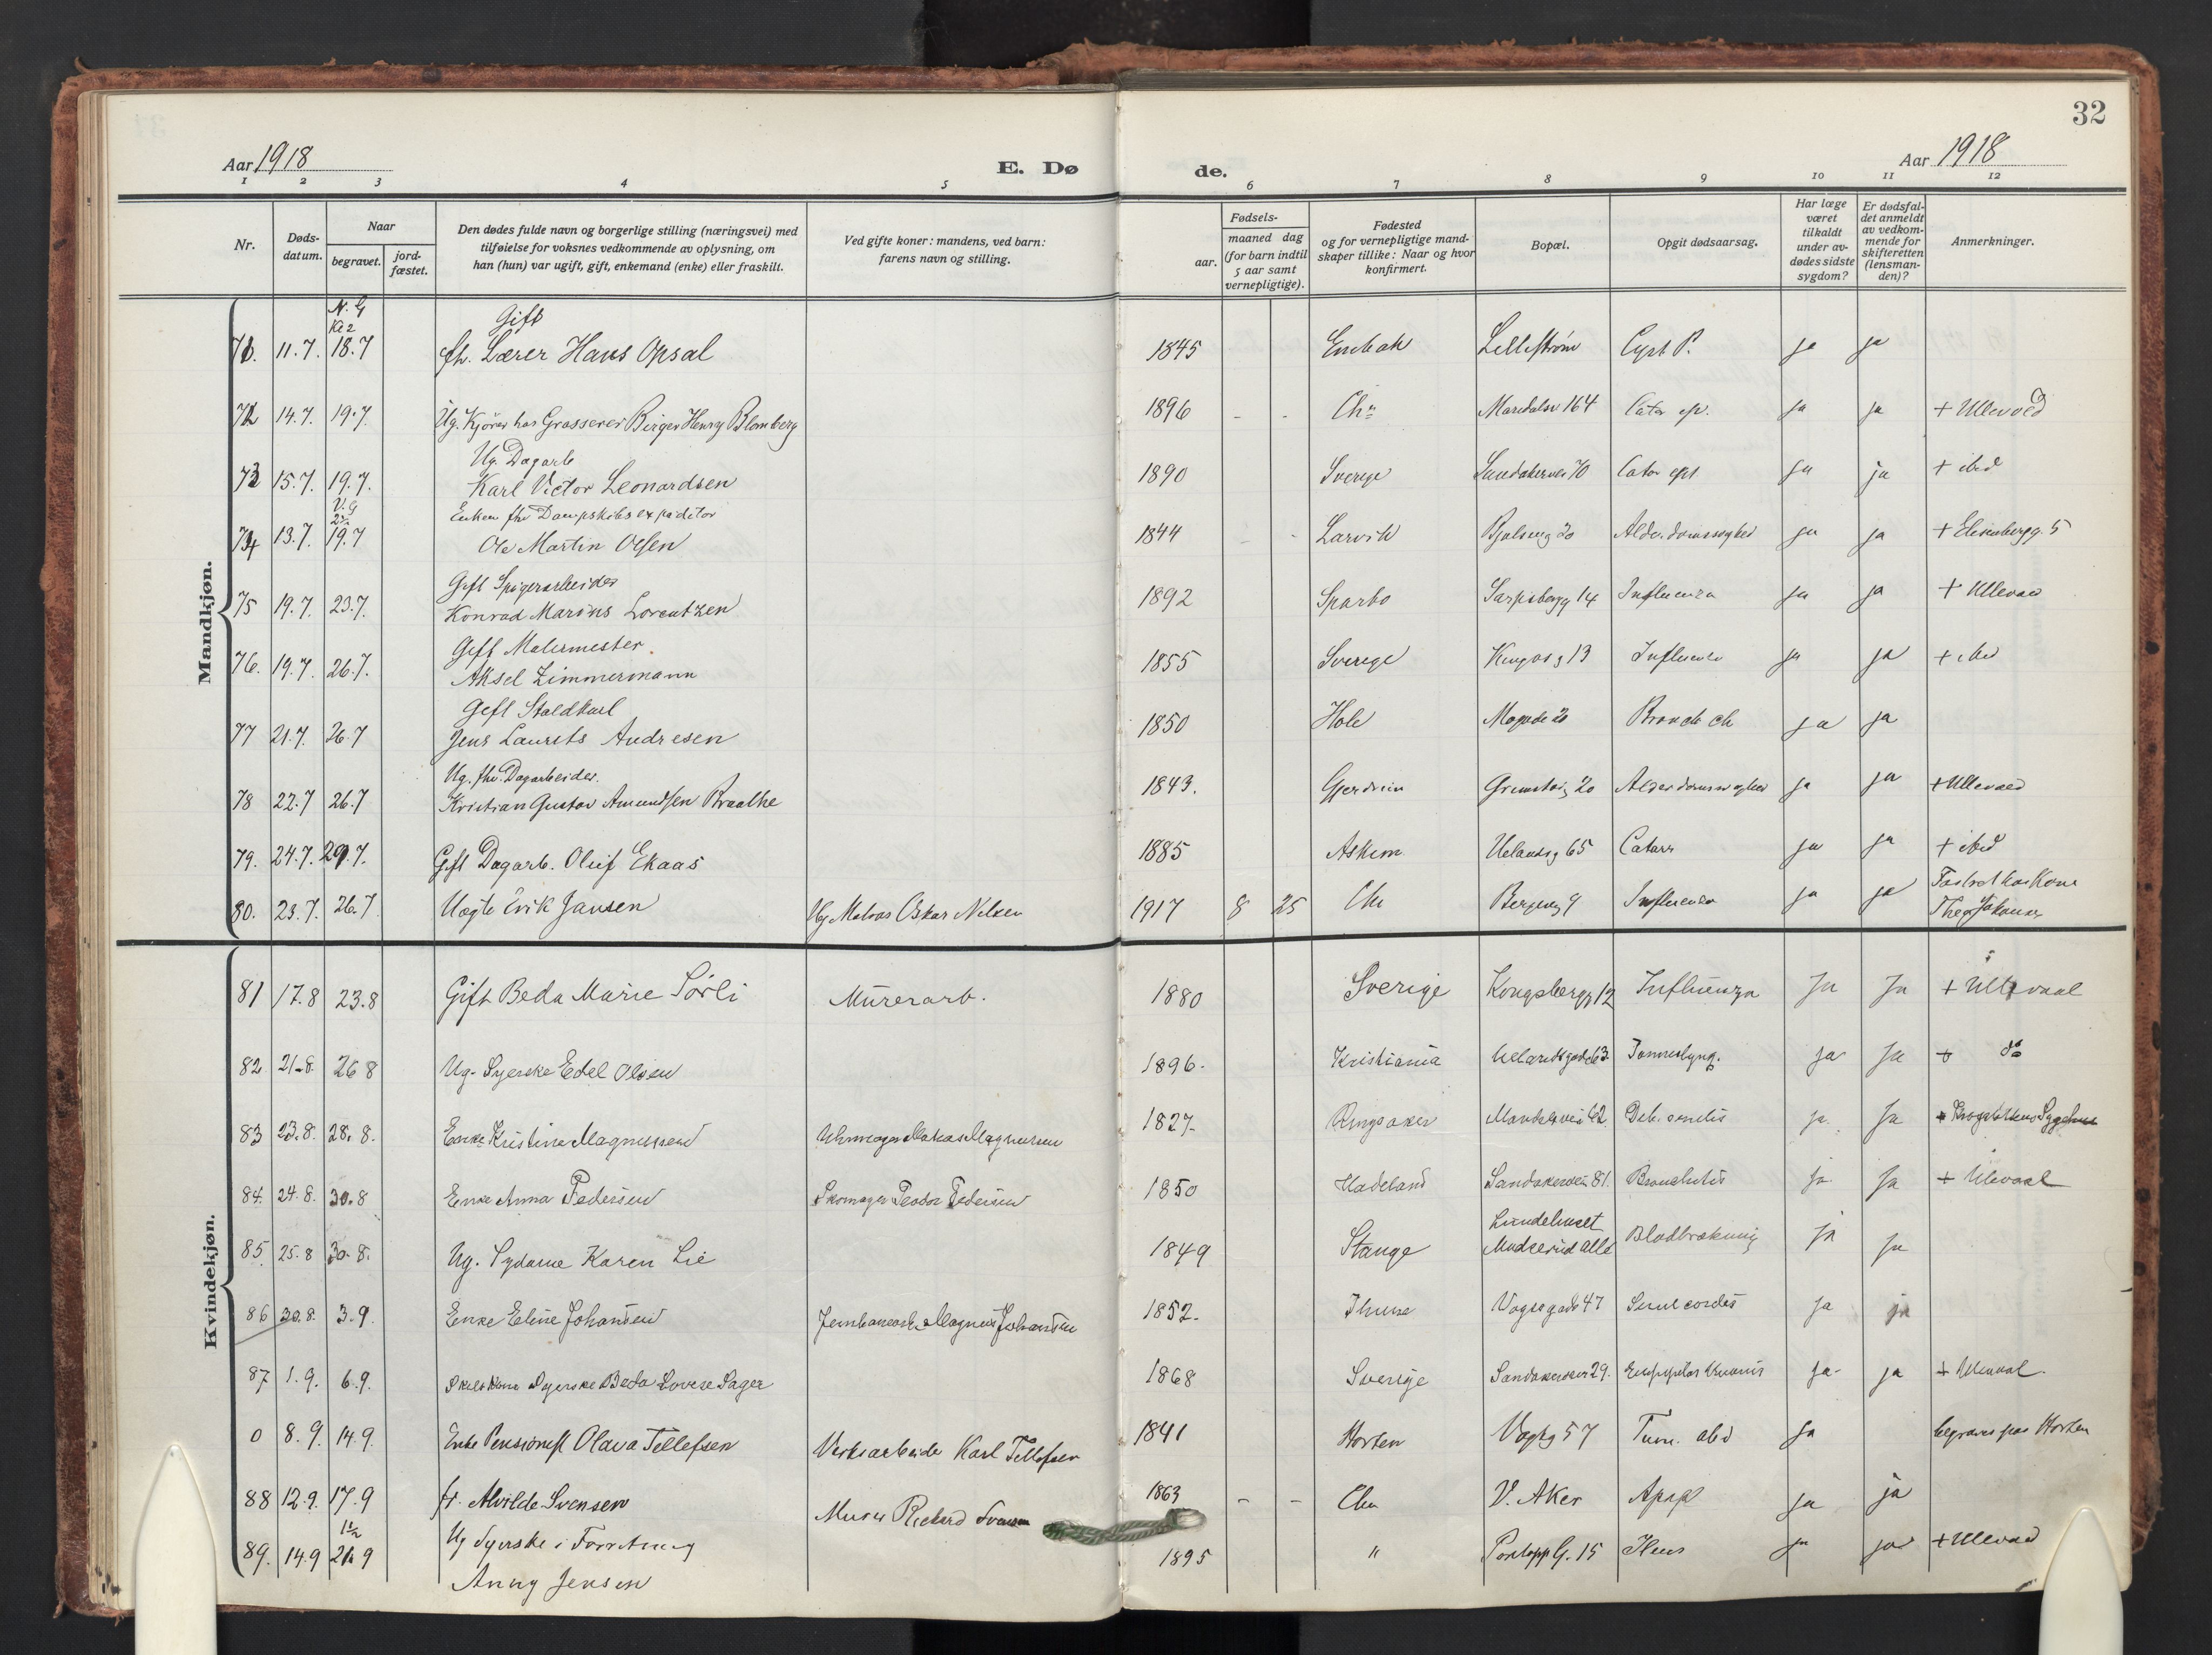 32
Aar 1918
E. Dø
de.
Aar 1918
1 2 3 4 5 6 7 8 9 10 11 12
Nr.
Døds-
datum.
Naar
begravet.
jord-
fæstet.
Den dødes fulde navn og borgerlige stilling (næringsvei) med
tilføielse for voksnes vedkommende av oplysning, om
han (hun) var ugift, gift, enkemand (enke) eller fraskilt.
Ved gifte koner: mandens, ved barn:
farens navn og stilling.
Fødsels-
aar.
maaned dag
(for barn indtil
5 aar samt
vernepligtige).
Fødested
og for vernepligtige mand-
skaper tillike: Naar og hvor
konfirmert.
Bopæl.
Opgit dødsaarsag.
Har læge
været
tilkaldt
under av-
dødes sidste
sygdom?
Er dødsfal-
det anmeldt
av vedkom-
mende for
skifteretten
(lensman-
den)?
Anmerkninger.
Mandkjøn.
N. G
Kl 2
Gift
71. 11.7. 18.7 fh. Lærer Hans Opsal 1845 Enebak Lillestrøm Cyst P. ja ja
72 14.7. 19.7. Ug. Kjører hos Grosserer Birger Henry Blomberg 1896 - - Chr Maridalsv 164 Catar ep. ja ja + Ullevold
Ug. Dagarb
73 15.7. 19.7. Karl Victor Leonardsen 1890 Sverige Sandakerveien 70 Catar ept ja ja + ibid
V.G
Enkem fhv Dampskibsexpeditor
74 13.7. 19.7 Ole Martin Olsen 1844 - - Larvik 20 Alderdomssvaghed ja ja + Elisenbergg. 5
Gift Spigerarbeider
75 19.7. 23.7. Konrad Marius Lorentzen 1892 Sparbo Sarpsborgg 14 Influenza ja ja + Ullevaal
Gift Malermester
76. 19.7. 26.7. Aksel Zimmermann 1855 Sverige Kingosg 13 Influenza ja ja + ibid
Gift Staldkarl
77 21.7. 26.7 Jens Laurits Andresen 1850 Hole 20 Bronch ch ja ja
Ug. fhv. Dagarbeider.
78 22.7 26.7 Kristian Gustav Amundsen Braathe 1843. Gjerdrum Grimstadg 20 Alderdomssvaghed ja ja + Ullevaal
79. 24.7. 29.7. Gift Dagarb. Oluf Ekaas 1885 Askim Uelandsg 65 Catarr ja ja + ibid
80. 23.7. 26.7 Uægte Erik Jansen Ug Matros Oskar Nilsen 1917 8 25 Chr Bergveng 9 Influenza ja ja Fosterd hos Kone
Thea
Kvindekjøn.
81 17.8 23.8 Gift Beda Marie Sørli Mürerarb. 1880 Sverige Kongsbergg 12 Influenza Ja Ja + Ullevaal
82 21-8. 26 8 Ug. Syerske Edel Olsen 1896. Kristiania Uelandsgade 63 ja Ja + do
83 23.8. 28.8. Enke Kristine Magnussen Uhrmager Magnussen 1827. Ringsaker 62 Deb. senilis ja. Ja +
84. 24.8. 30.8 Enke Anna Pedersen Skomager Peder Pedersen 1850 Hadeland Sandakerveien 81. Bronchitis ja Ja + Ullevaal
Lindehuset
85 25.8 30.8. Ug. Sydame Karen Lie 1849 Stange Madserud Allé Blodbrækning ja Ja
86 30.8. 3.9. Enke Eline Johansen Jernbanearb. Magnus Johansen 1852. Thune Vogtsgade 47 cordis ja ja
87 1.9. 6.9. Skilt Kone Syerske Beda Lovise Sager 1868 Sverige Sandakerveien 29. ja ja + Ullevaal.
0 8.9. 14.9. Enke Pensionist Olava Tellefsen Verksarbeider Karl Tellefsen 1841 Horten Vogtsg 57 Tum. abd ja begraves paa Horten
88 12.9. 17.9 fr. Alvilde Svensen Murer Rickard Svensen 1863 - - Chr V. Aker Apopl ja ja
1½
Ug Syerske i Forretning
89. 14.9 21.9 Anny Jensen 1895 " G. 15 Ileus ja ja + Ullevaal